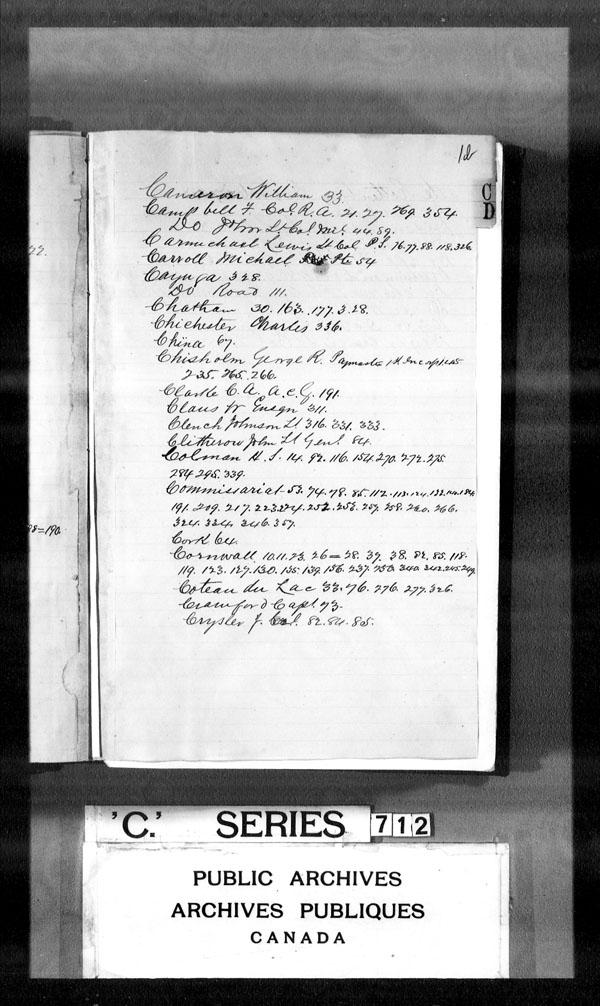 C
D
Cameron William 33.
Campbell F. Col. R.A. 21.27. 269. 354
Do John Lt Col. Mil. 44.89.
Carmichael Lewis Lt Col P.S. 76.77.88.118.326
Carroll Michael Pte 54
Cayuga 328.
Do Road 111.
Chatham 30.163.177.328.
Chichester Charles 336.
China 67.
Chisholm George R. Paymaster
235. 265. 266.
Clarke C.A. A.C.G. 191.
Claus W Ensign 311.
Clench Johnson Lt 316. 331. 333.
Clitherow John Lt Genl. 84.
Colman H. S. 14. 92. 116. 154. 270. 272. 275
284 295. 339.
Commissariat 53. 74. 78. 85. 112.
191. 209. 217. 266.
324. 334. 346. 357.
Cork 64.
Cornwall 10.11.23. 26=28. 37. 38. 82. 85. 118.
119. 123. 127. 130. 135. 139. 156. 237.
Coteau du Lac 33. 76. 276. 277. 326.
Crawford Capt. 73.
Crysler J. Col. 82. 84. 85.
=190
'C.' SERIES 712
PUBLIC ARCHIVES
ARCHIVES PUBLIQUES
CANADA